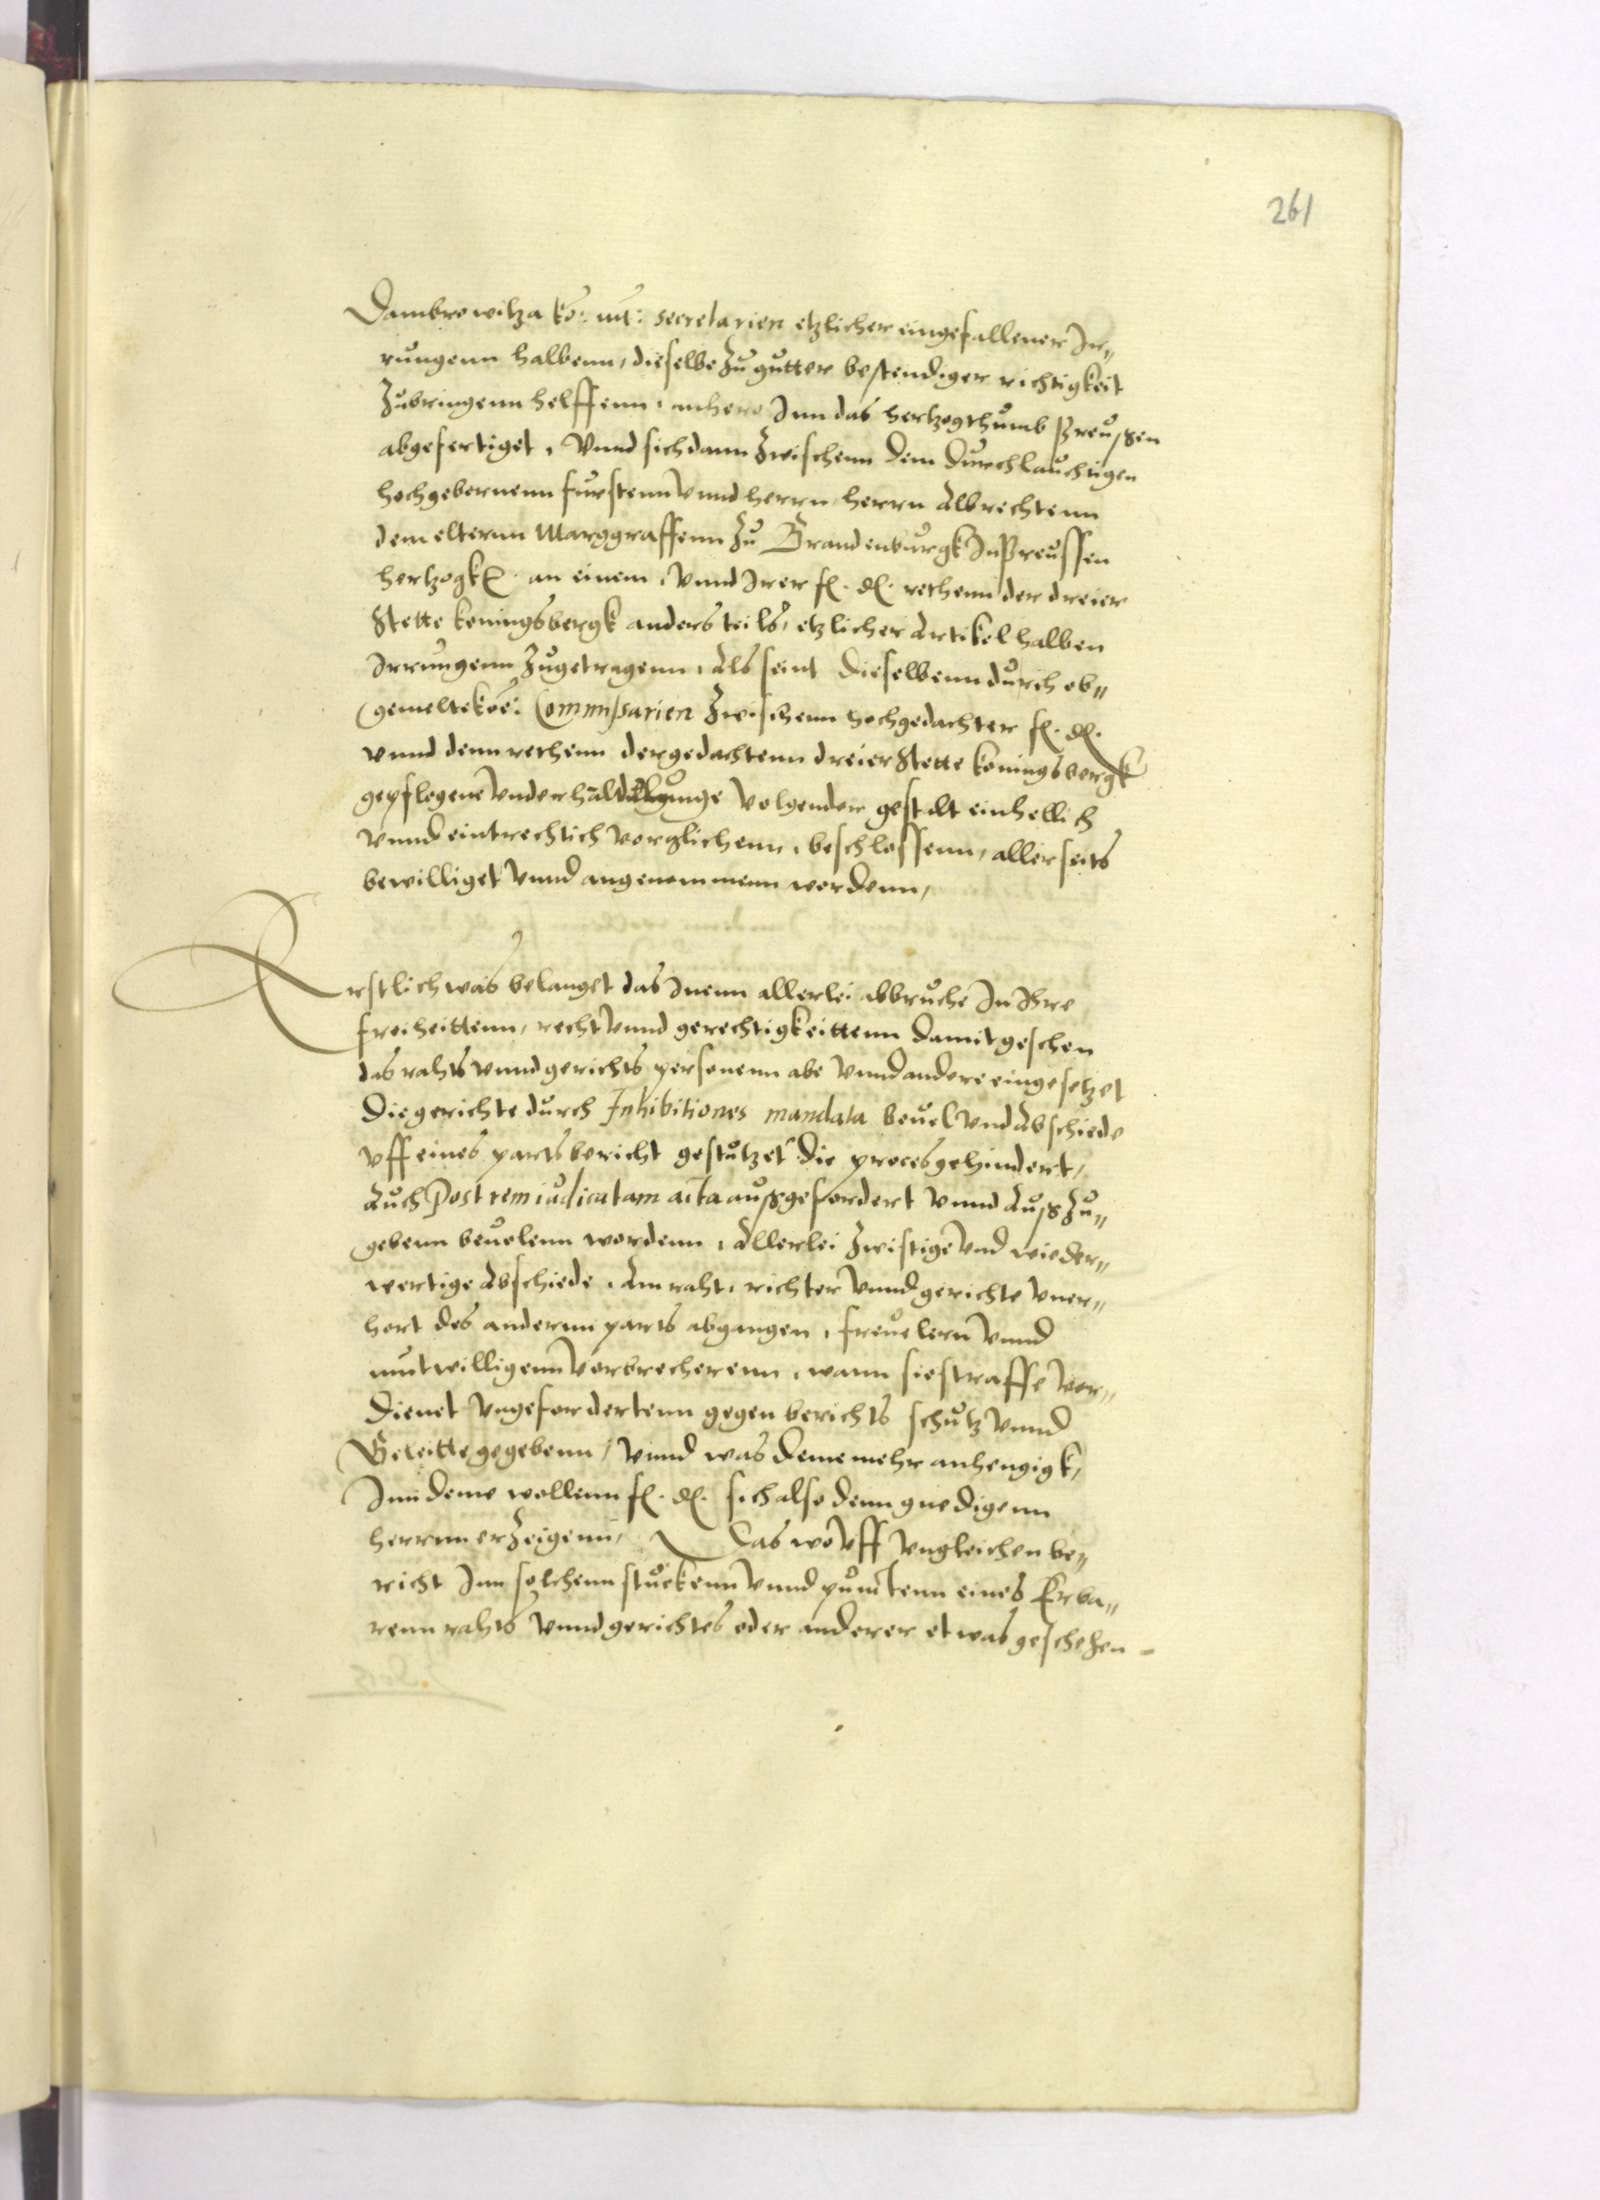 261
Dambrowitza ko: mt: secretarien etzlicher eingefallener Ir„
rungenn halbenn, dieselbe zu gutter bestendiger richtigkeit
zubringenn helffenn, anhero Inn das hertzogthumb Preussen
abgefertiget, Vnnd sich dann zwischenn dem Durchlauchtigen
hochgebornenn furstenn Vnnd herrn, herrn Albrechtenn
dem elternn Marggraffenn zu Brandenburgk In Preussen
hertzogk an einem, Vnnd Irer f. d. rethenn der dreier
Stette koningsbergk anders teils, etzlicher Artikel halben
Irrungenn zugetragenn, Als seint dieselbenn durch ob„
gemelte koe: Commissarien zwischenn hochgedachter f. d.
vnnd denn rethenn der gedachtenn dreier Stette koningsbergk
gepflogene Vnderhandlunge volgender gestalt einhellich
vnnd eintrechtich vorglichenn, beschlossenn, allerseits
bewilliget Vnnd angenommenn wordenn,
Erstlich was belanget das Inenn allerlei abbruche In Ihre
freiheittenn, recht Vnnd gerechtigkeittenn damit geschen
das rahts Vnnd gerichts personenn abe Vnnd andere eingesetzet
Die gerichte durch Inhibitiones mandata beuel Vnd Abschiede
vff eines parts bericht gestutzet die proces gehindert,
Auch Post rem iudicatam acta aussgefordert Vnnd Ausszu„
gebenn beuolenn wordenn, Allerlei zwistige Vnd wieder„
wertige Abschiede, Am raht, richter Vnnd gerichte vner„
hort des andernn parts abgangen, freuelern Vnnd
mutwilligenn Vorbrecherenn, wann sie straffe vor„
dienet Vngefordertenn gegen berichts schutz Vnnd
Geleitte gegebenn, Vnnd was deme mehr anhengigk,
Inn deme wollenn f. d. sich also denn gnedigenn
herrnn erzeigenn, Das wo Vff vngleichen be„
richt Inn solchenn stuckenn Vnnd punctenn eines Erba„
renn rahts Vnnd gerichtes oder anderer etwas geschehen